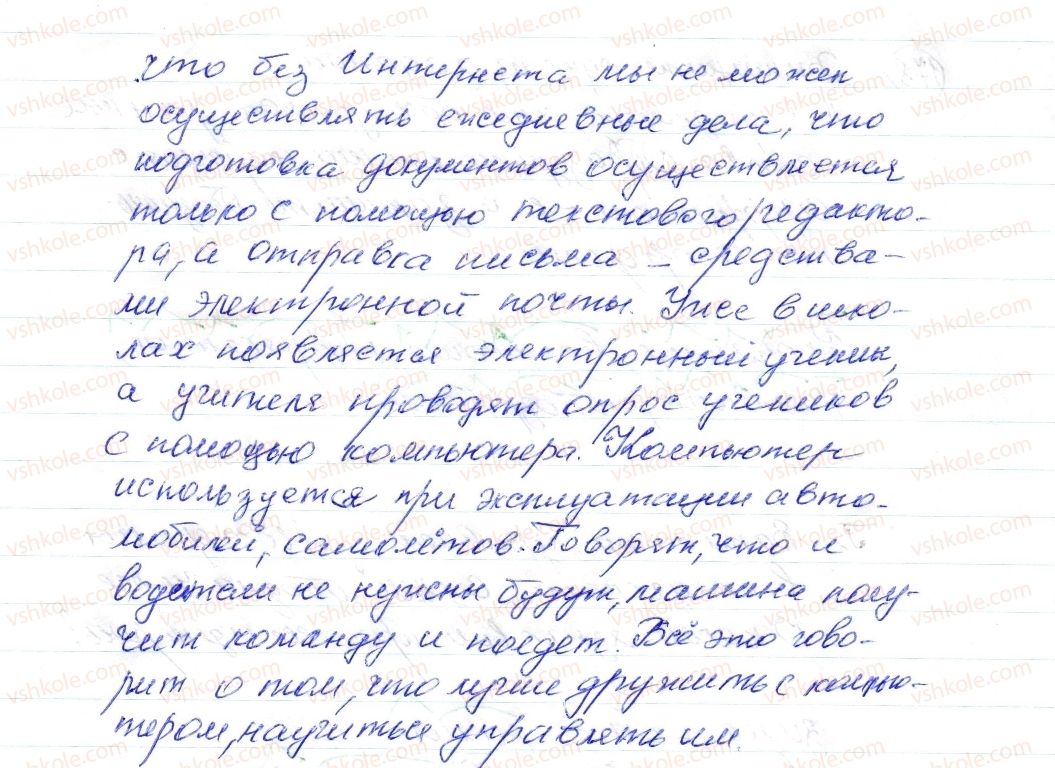 что без Интернета мы не можем
осуществлять ежедневные дела, что
подготовка документов осуществляется
только с помощью текстового редакто-
ра, а отправка письма – средства-
ми электронной почты. Уже в шко-
лах появляется электронный ученик,
а учителя проводят опрос учеников
с помощью компьютера. Компьютер
используется при эксплуатации авто-
мобилей, самолётов. Говорят, что и
водители не нужны будут, машина полу-
чит команду и поедет. Всё это гово-
рит о том, что лучше дружить с компью-
тером, научиться управлять им.
vshkole.com